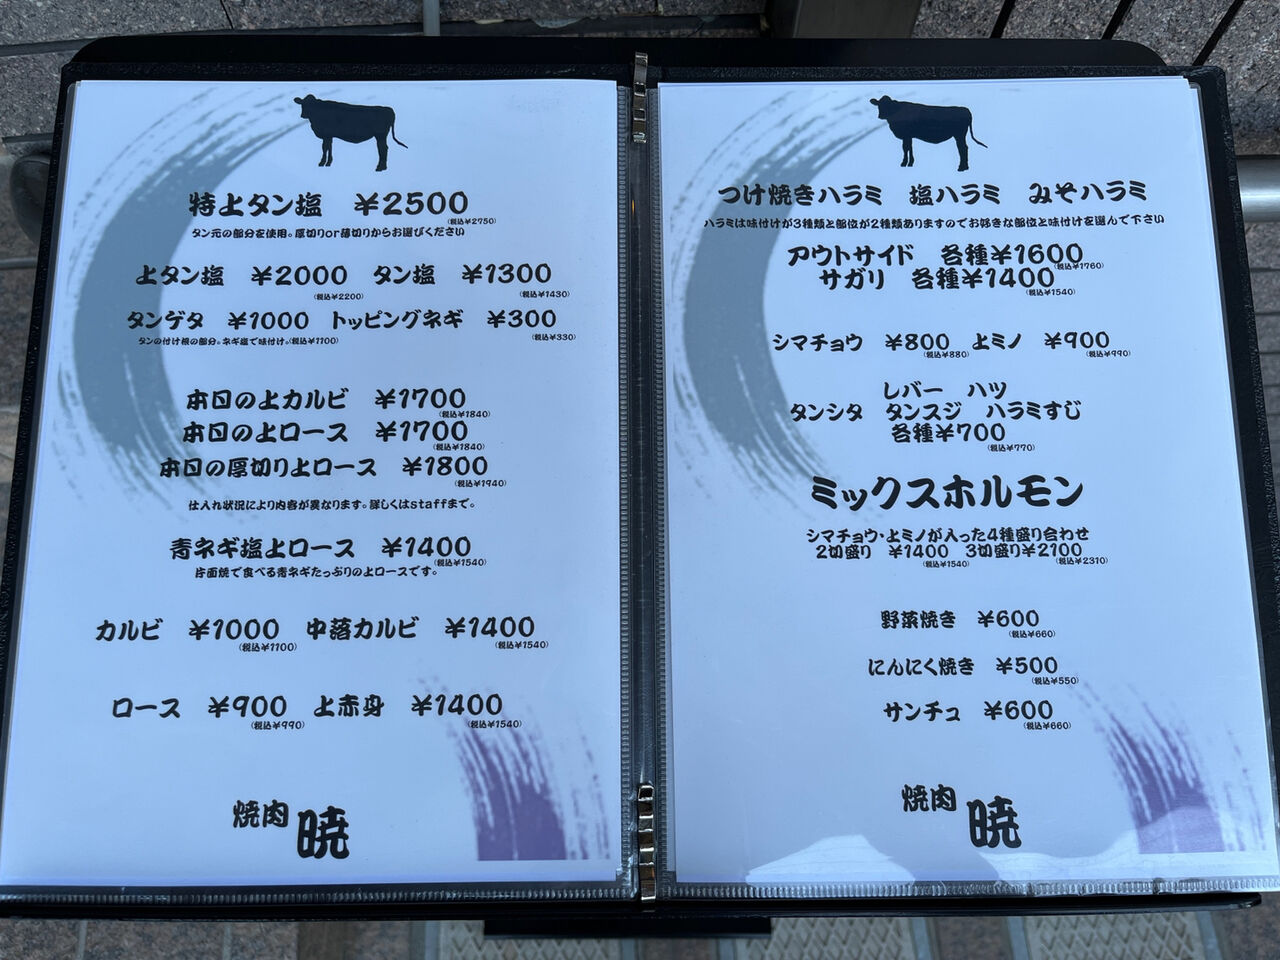 特上タン塩 ¥2500
(税込¥2750)
タン元の部分を使用。厚切りor薄切りからお選びください
上タン塩 ¥2000 タン塩 ¥1300
(税込¥2200) (税込¥1430)
タンゲタ ¥1000 トッピングネギ ¥300
タンの付け根の部分。ネギ塩で味付け。(税込¥1100) (税込¥330)
本日の上カルビ ¥1700
(税込¥1840)
本日の上ロース ¥1700
(税込¥1840)
本日の厚切り上ロース ¥1800
(税込¥1940)
仕入れ状況により内容が異なります。詳しくはstaffまで。
青ネギ塩上ロース ¥1400
(税込¥1540)
片面焼で食べる青ネギたっぷりの上ロースです。
カルビ ¥1000 中落カルビ ¥1400
(税込¥1100) (税込¥1540)
ロース ¥900 上赤身 ¥1400
(税込¥990) (税込¥1540)
焼肉 暁
つけ焼きハラミ 塩ハラミ みそハラミ
ハラミは味付けが3種類と部位が2種類ありますのでお好きな部位と味付けを選んで下さい
アウトサイド 各種¥1600
(税込¥1760)
サガリ 各種¥1400
(税込¥1540)
シマチョウ ¥800 上ミノ ¥900
(税込¥880) (税込¥990)
レバー ハツ
タンシタ タンスジ ハラミすじ
各種¥700
(税込¥770)
ミックスホルモン
シマチョウ・上ミノが入った4種盛り合わせ
2切盛り ¥1400 3切盛り¥2100
(税込¥1540) (税込¥2310)
野菜焼き ¥600
(税込¥660)
にんにく焼き ¥500
(税込¥550)
サンチュ ¥600
(税込¥660)
焼肉 暁